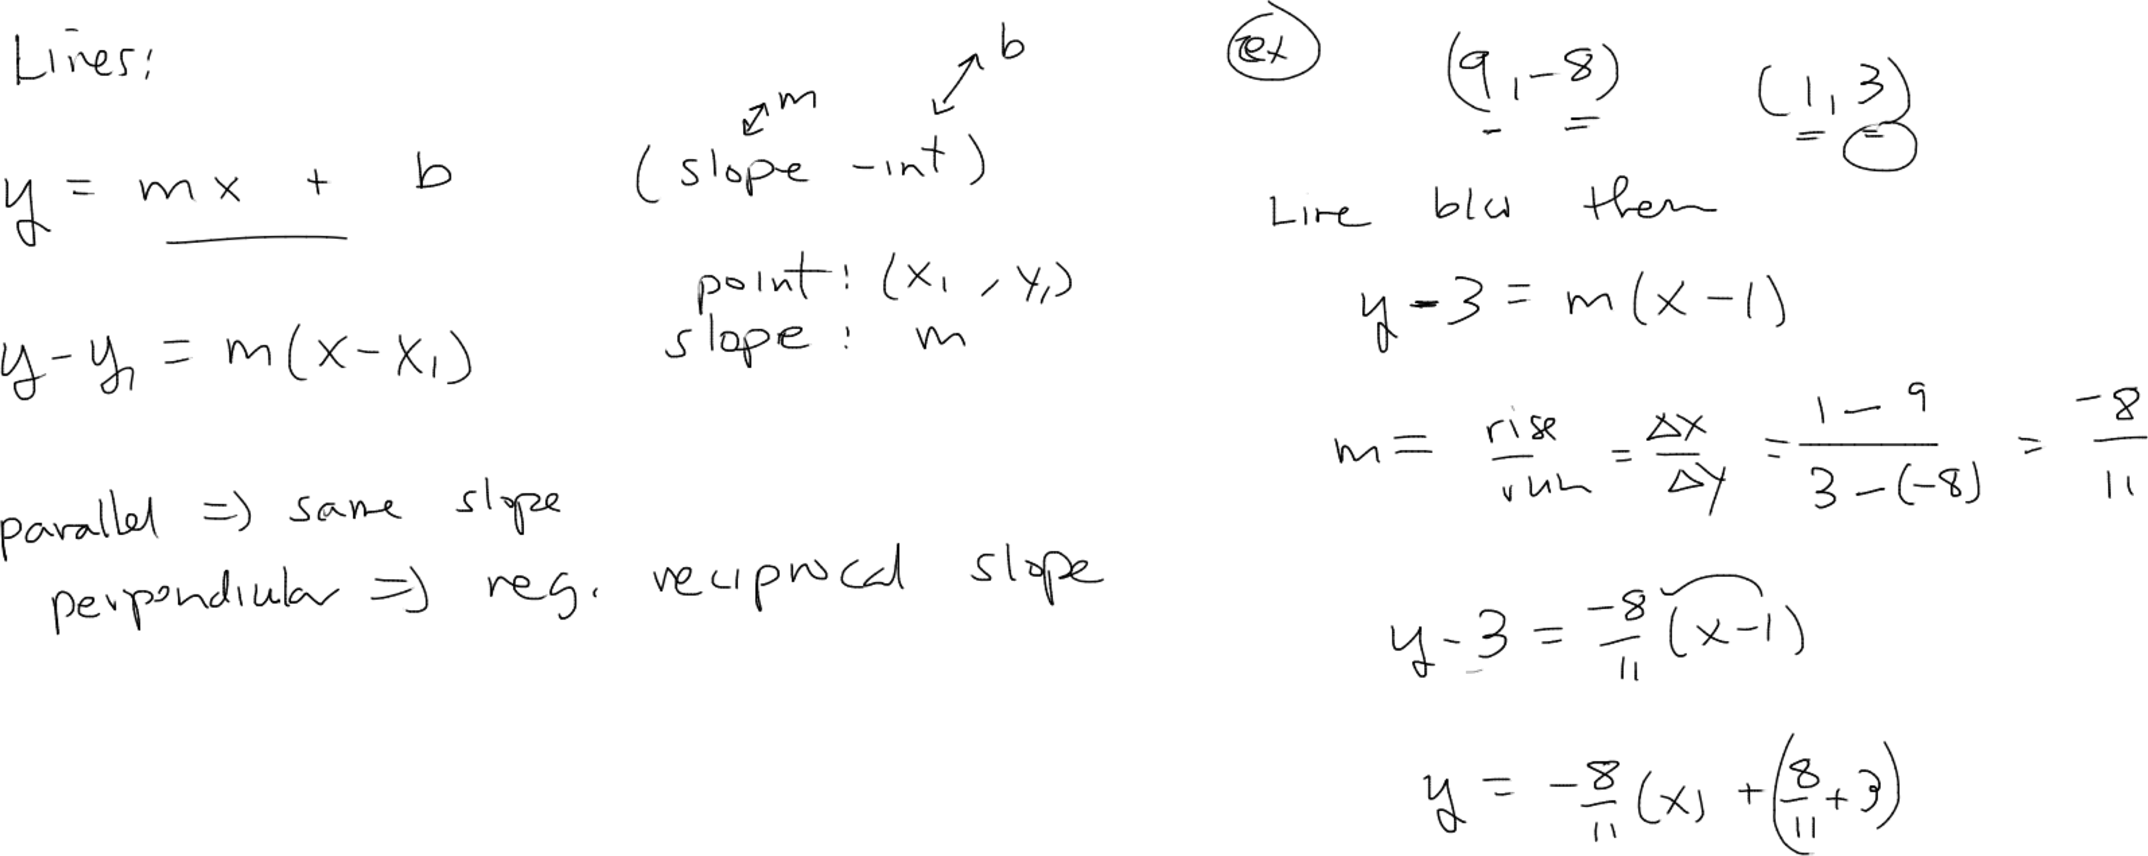 Lines:
m
b
y = mx + b
(slope -int)
y-y₁ = m(x-x₁)
point: (x₁, y₁)
slope: m
parallel => same slope
perpendicular => neg. reciprocal slope
ex
(9,-8) (1,3)
Line b/w them
y-3 = m(x-1)
m = rise/run = Δx/Δy = (1-9)/(3-(-8)) = -8/11
y-3 = -8/11 (x-1)
y = -8/11 (x) + (8/11+3)